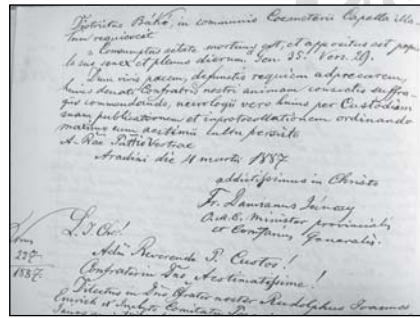 Districtus Bákó, in communis Coemeterii Capella illa-
tum requiescit
"Consumptus aetate mortuus est, et appositus est popu-
lo suo senex et plenus dierum. Gen. 35. Vers. 29.
Dum vivis pacem, defunctis requiem adprecarem,
hujus donati Confratris nostri animam consuetis suffra-
giis commendando, necrologii vero hujus per Custodiam
suam publicationem et inprotocollationem ordinando
maximo cum aestimii cultu persisto
A. Rae Pttis Vestrae
Aradini die 4 martii 1887
addictissimus in Christo
Fr. Damianus
O.d.S. Minister provincialis
et Comparius Generalis.
Nrus
227
1887
L. J. Chr!
Adm Reverende P. Custos!
Confrater in Dno Aestimatissime!
Dilectus in Dno frater noster Rudolphus Joannes
Emrich et Comitatu